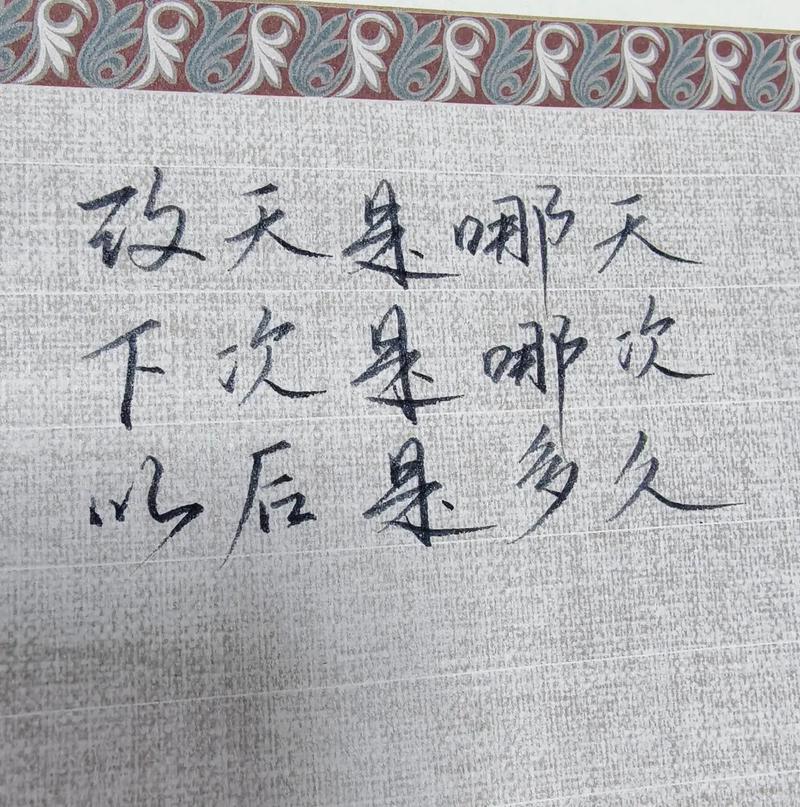 改天是哪天
下次是哪次
以后是多久